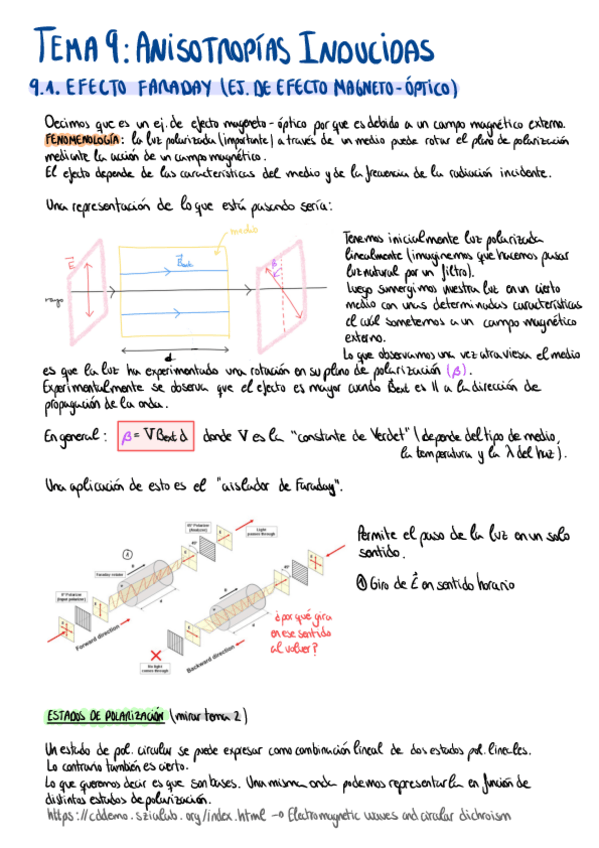 TEMA 9: ANISOTROPÍAS INDUCIDAS
9.1. EFECTO FARADAY (EJ. DE EFECTO MAGNETO-ÓPTICO)
Decimos que es un ej. de efecto magneto-óptico por que es debido a un campo magnético externo.
FENOMENOLOGÍA: la luz polarizada (importante) a través de un medio puede rotar el plano de polarización
mediante la acción de un campo magnético.
El efecto depende de las características del medio y de la frecuencia de la radiación incidente.
Una representación de lo que está pasando sería:
medio
E
Bext
β
rayo
d
Tenemos inicialmente luz polarizada
linealmente (imaginemos que hacemos pasar
luz natural por un filtro).
Luego sumergimos nuestra luz en un cierto
medio con unas determinadas características
el cual sometemos a un campo magnético
externo.
Lo que observamos una vez atraviesa el medio
es que la luz ha experimentado una rotación en su plano de polarización (β).
Experimentalmente se observa que el efecto es mayor cuando Bext es || a la dirección de
propagación de la onda.
En general: β = V Bext d donde V es la "constante de Verdet" (depende del tipo de medio,
la temperatura y la λ del haz).
Una aplicación de esto es el "aislador de Faraday".
45° Polarizer
(Analyzer)
Light
passes through
45°
Faraday rotator
0° Polarizer
(Input polarizer)
Forward direction
No light
comes through
Backward direction
45°
Permite el paso de la luz en un solo
sentido.
① Giro de E en sentido horario
¿por qué gira
en ese sentido
al volver?
ESTADOS DE POLARIZACIÓN (mirar tema 2)
Un estado de pol. circular se puede expresar como combinación lineal de dos estados pol. lineales.
Lo contrario también es cierto.
Lo que queremos decir es que son bases. Una misma onda podemos representarla en función de
distintos estados de polarización.
https://cddemo.szialab.org/index.html → Electromagnetic waves and circular dichroism